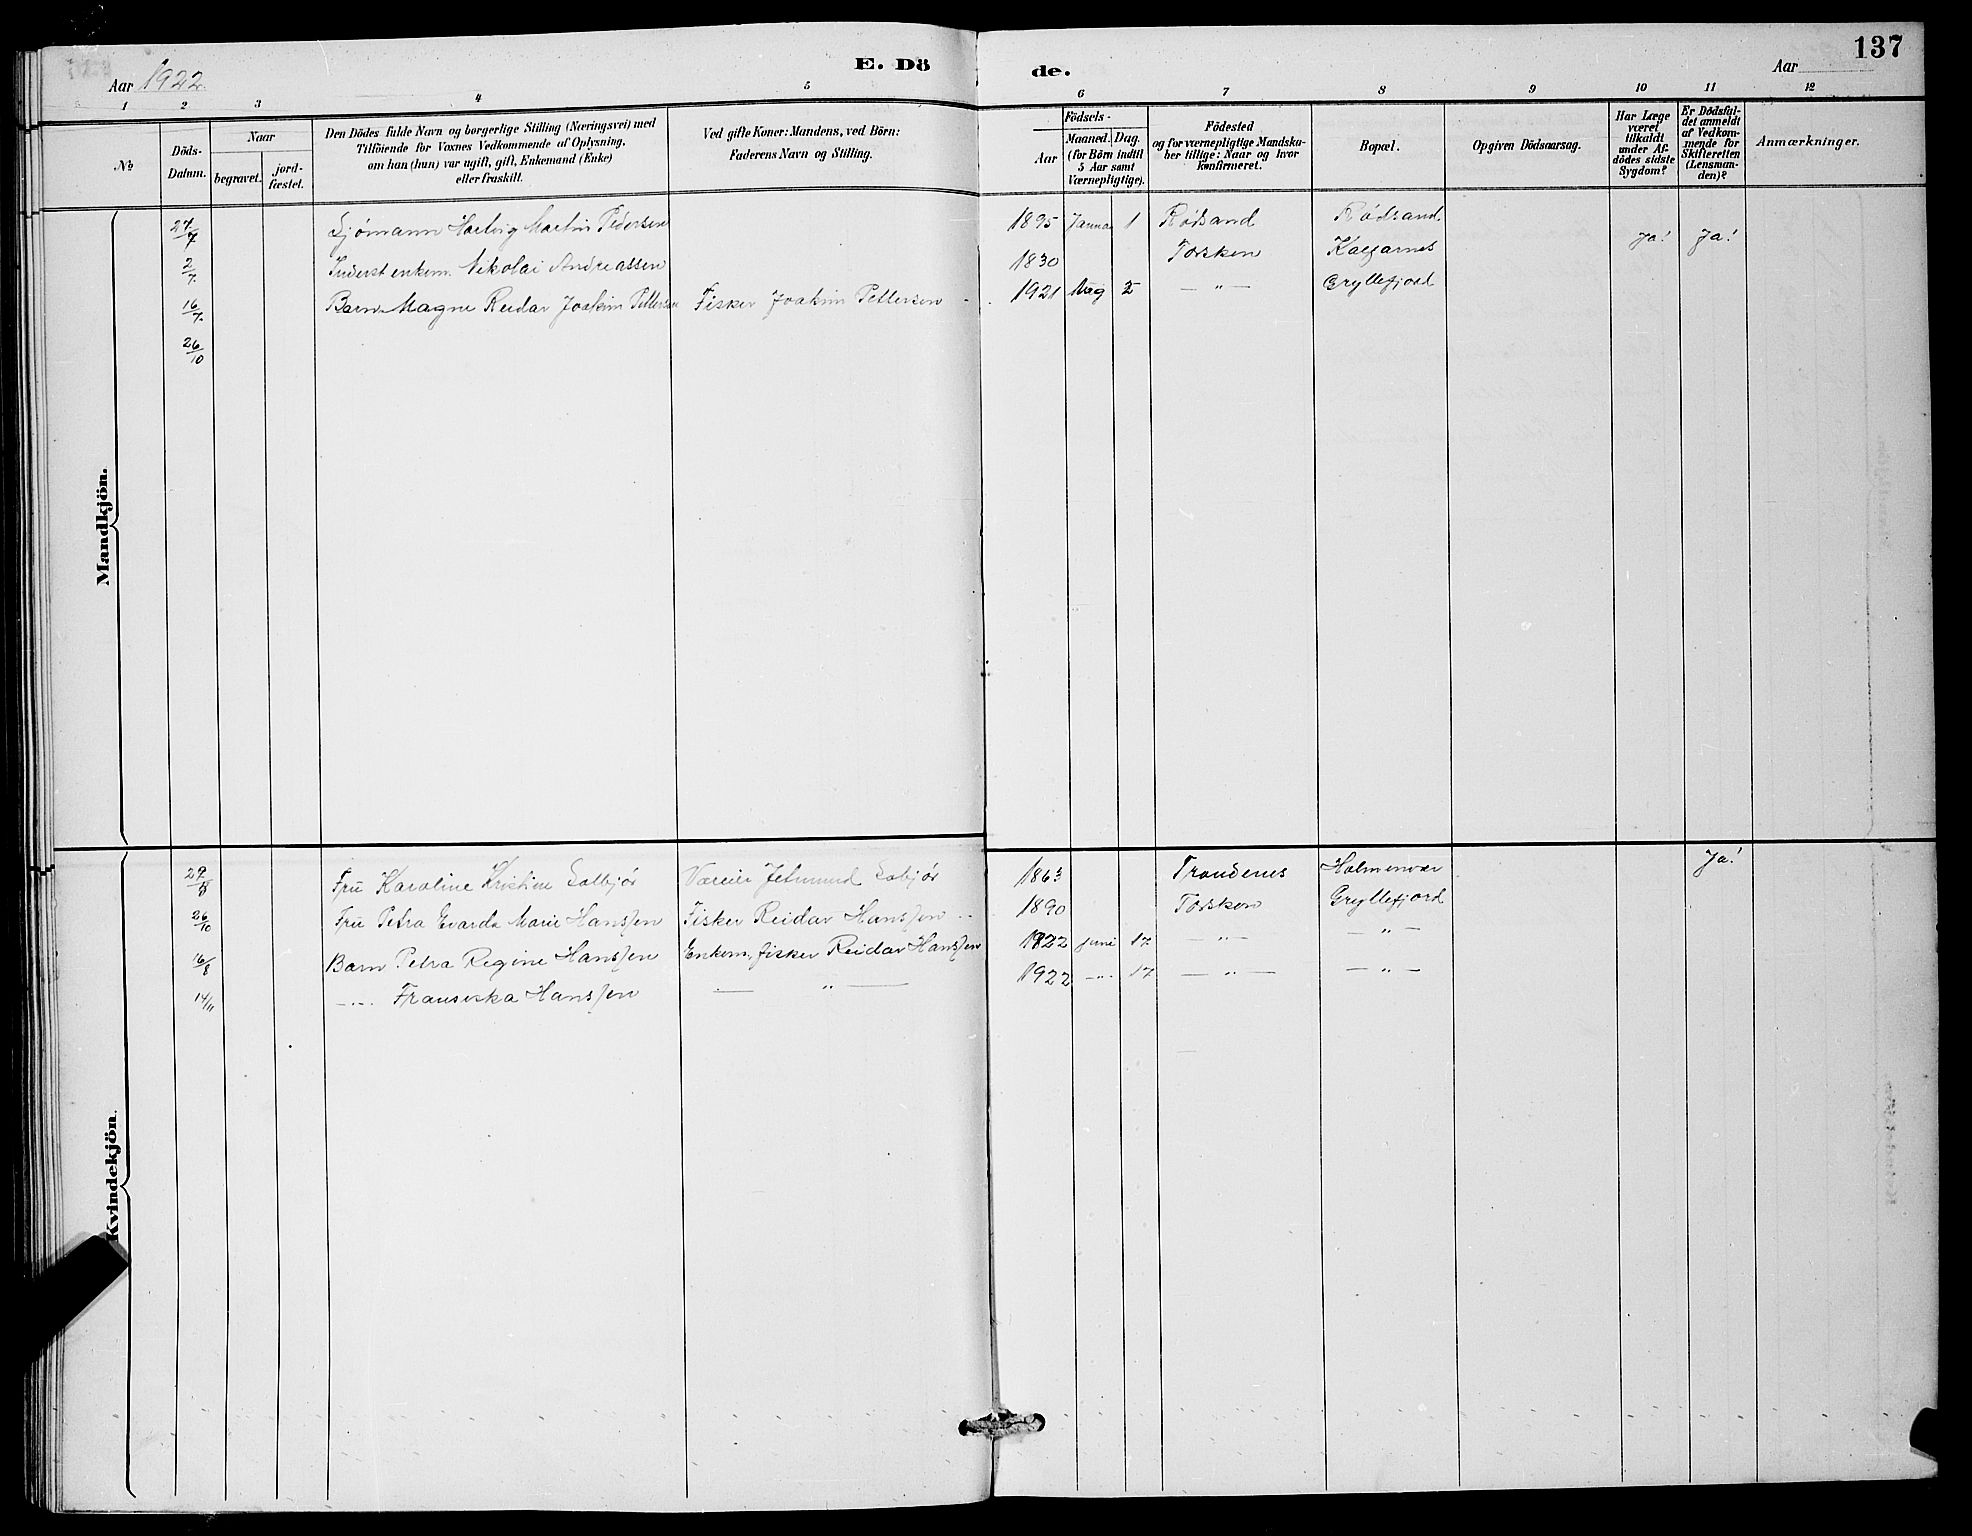 137
E. Dö de.
Aar 1922. Aar
1 2 3 4 5 6 7 8 9 10 11 12
№
Döds-Datum.
Naar
begravet.
jordfæstet.
Den Dödes fulde Navn og borgerlige Stilling (Næringsvei) med
Tilföiende for Voxnes Vedkommende af Oplysning,
om han (hun) var ugift, gift, Enkemand (Enke)
eller fraskilt.
Ved gifte Koner: Mandens, ved Börn:
Faderens Navn og Stilling.
Födsels-
Aar
Maaned. Dag.
(for Börn indtil
5 Aar samt
Værnepligtige).
Födested
og for værnepligtige Mandskaber tillige: Naar og hvor
konfirmeret.
Bopæl.
Opgiven Dödsaarsag.
Har Læge
været
tilkaldt
under Afdödes sidste
Sygdom?
Er Dödsfaldet anmeldt
af Vedkommende for
Skifteretten
(Lensmanden)?
Anmærkninger.
Mandkjön.
27/7 Sjømann Hartvig Martin Pedersen 1895 Januar 1 Rødsand Rødsand.
2/7. Inderst enkem. Nikolai Andreassen 1830 Torsken Kalfarnes Ja! Ja!
16/7. Barn Magne Reidar Joakim Pettersen Fisker Joakim Pettersen - 1921 Aug 2 — " — Gryllefjord
26/10
Kvindekjön.
29/8 Fru Karoline Kristine Solbjør Væreier Jetmund Solbjør 1863 Trondenes Holmenvær Ja!
26/10 Fru Petra Evarda Marie Hanssen Fisker Reidar Hanssen 1890 Torsken Gryllefjord
16/8 Barn Petra Regine Hanssen Enkem. fisker Reidar Hanssen 1922 juni 17 — " — — " —
14/11 — " — Fransiska Hanssen — " — 1922 — " — 17 — " — — " —